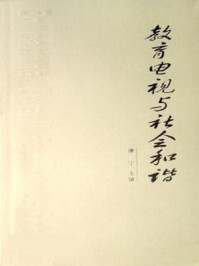 教育电视与社会和谐